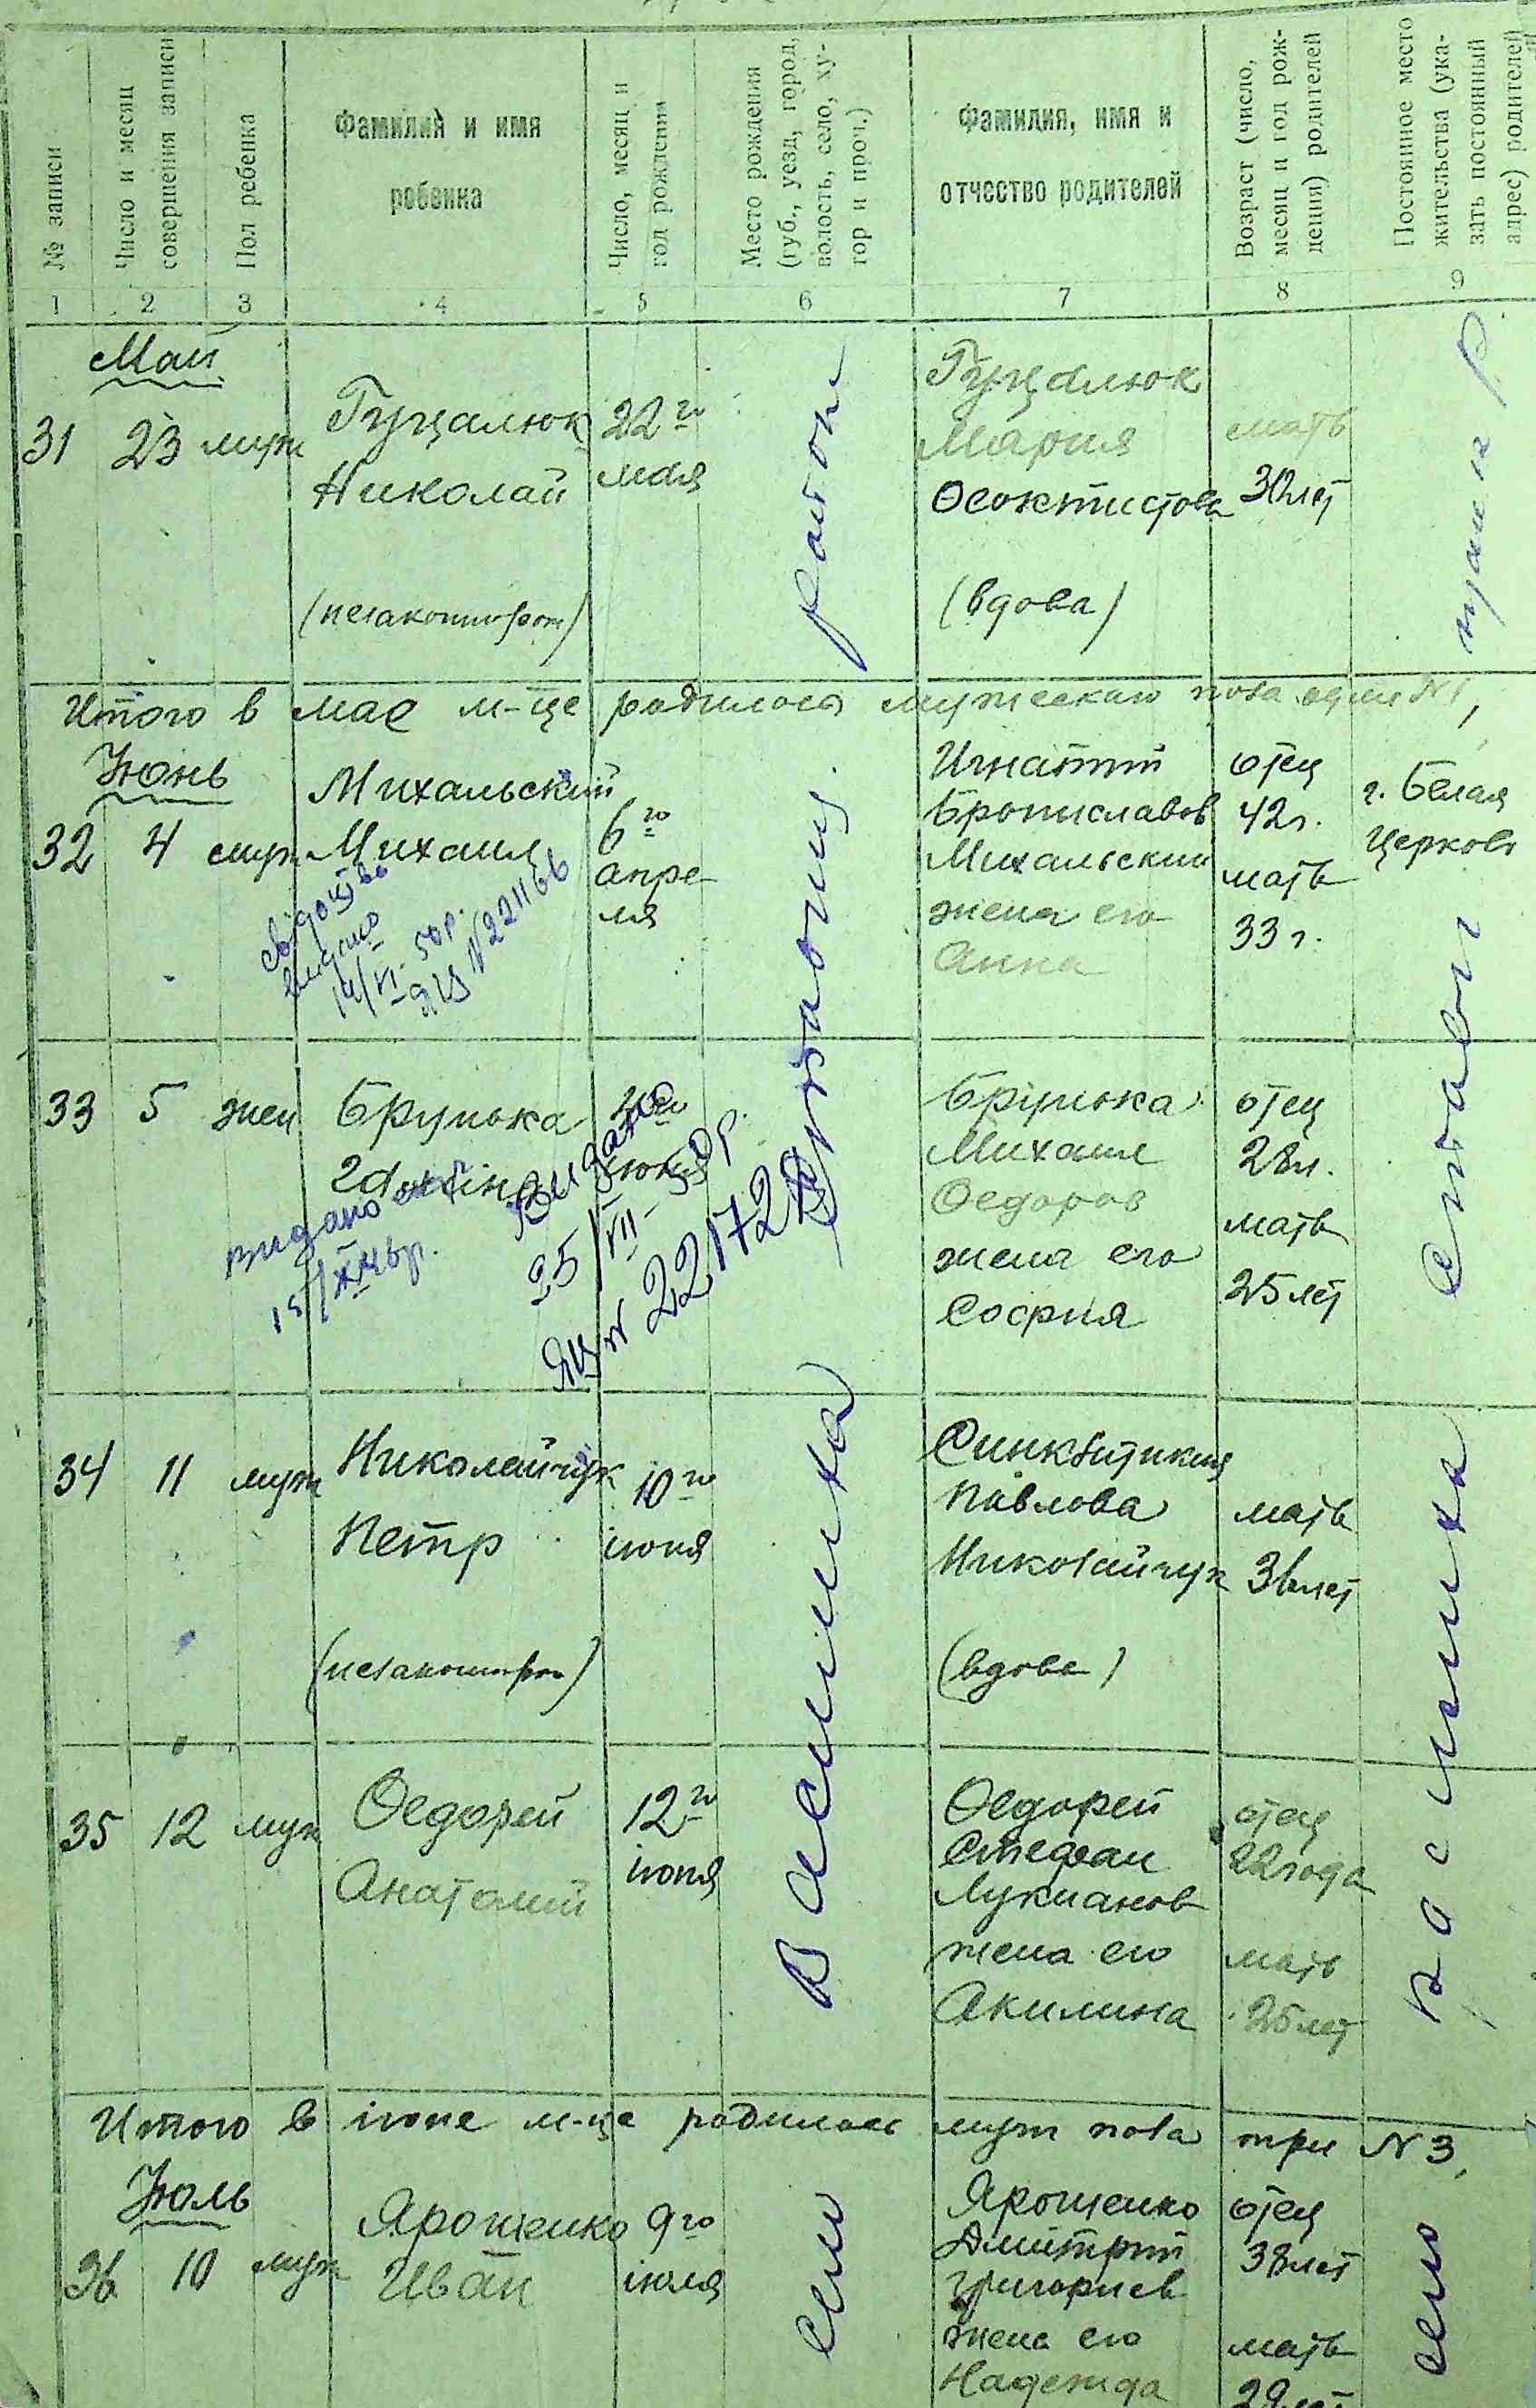 № записи
Число и месяц
совершения записи
Пол ребенка
Фамилия и имя
ребенка
Число, месяц и
год рождения
Место рождения
(губ., уезд, город,
волость, село, ху-
тор и проч.)
Фамилия, имя и
отчество родителей
Возраст (число,
месяц и год рож-
дения) родителей
Постоянное место
жительства (ука-
зать постоянный
адрес) родителей
1 2 3 4 5 6 7 8 9
Май
31 23 муж
Гуцалюк
Николай
(незаконнорож)
22го
мая
Гуцалюк
Мария
Феоктистова
(вдова)
мать
30 лет
Итого в мае м-це родилось мужескаго пола один N1,
Июнь
32 4 муж
Михальский
Михаил
свідоцтво
видано
14/VI-50р.
ЯЦ N221166
6го
апре-
ля
Игнатий
Брониславов
Михальский
жена его
Анна
отец
42г.
мать
33 г.
г. Белая
Церковь
33 5 жен
Брунька
видано
Видано
25/VII-50р.
июня
Брунька
Михаил
Федоров
жена его
София
отец
28л.
мать
25 лет
34 11 муж
Николайчук
Петр
(незаконнорож)
10го
июня
Павлова
Николайчук
(вдова)
мать
35 12 муж
Федорей
Анатолий
12го
июня
Федорей
Стефан
Лукианов
жена его
Акилина
отец
22 года
мать
25 лет
Итого в июне м-це родилось муж пола три N3,
Июль
36 10 муж
Ярошенко
Иван
9го
июля
Ярошенко
Дмитрий
Григориев
жена его
Надежда
отец
38 лет
мать
29 лет
село Василиха
село Василиха Ставищ